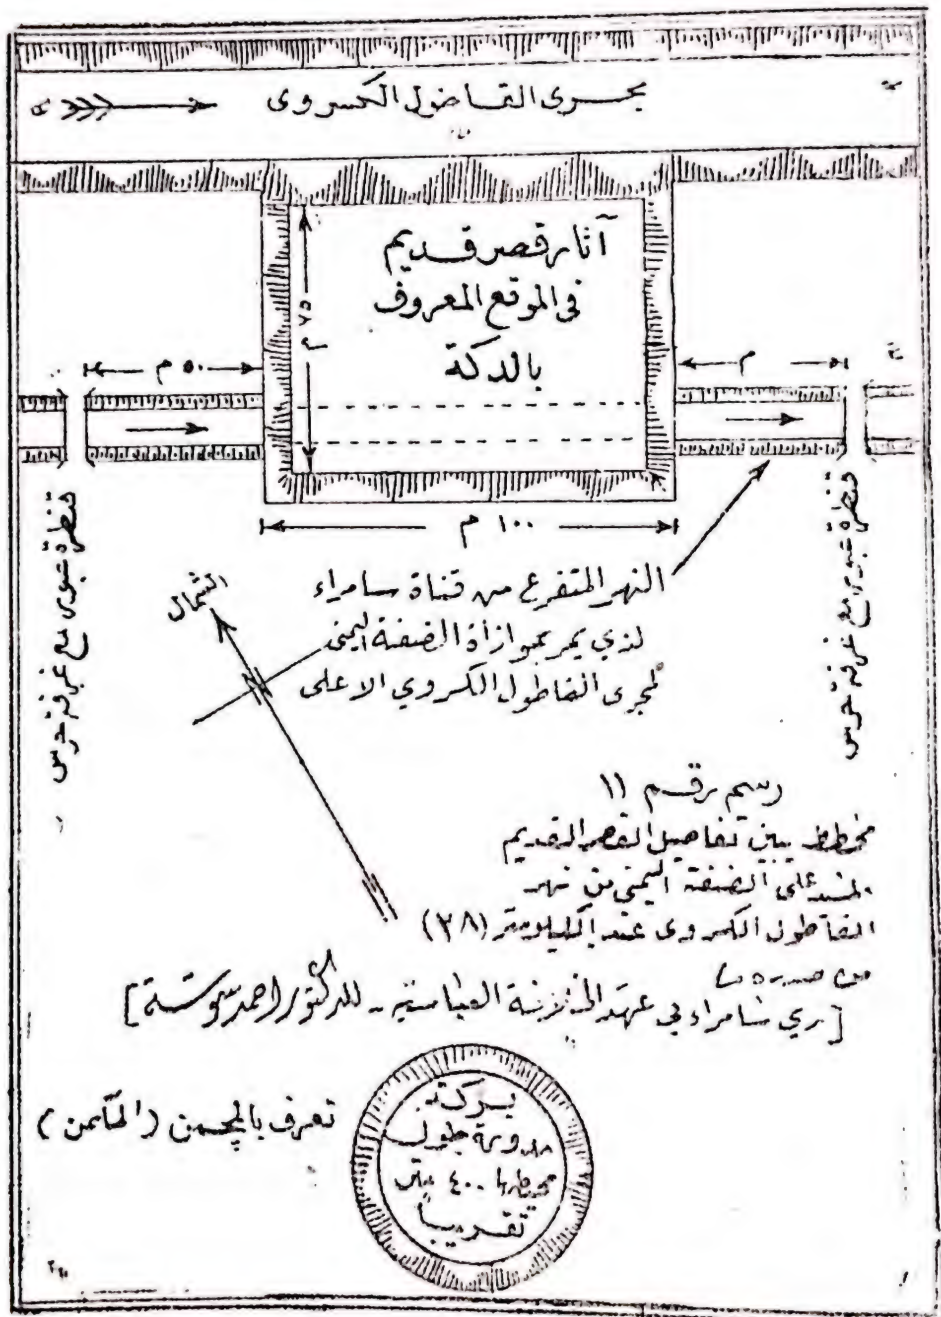 مجرى القاطول الكسروى
آثار قصر قديم
في الموقع المعروف
بالدكة
٧٥ م
٥٠ م
م
١٠٠ م
قنطرة عبور مع غرفة حرس
قنطرة عبور مع غرفة حرس
الشمال
النهر المتفرع من قناة سامراء
لذي يمر بموازاة الضفة اليمنى
لمجرى القاطول الكسروي الاعلى
رسم رقم ١١
مخطط يبين تفاصيل القصر القديم
على الضفة اليمنى من نهر
القاطول الكسروى عند الكيلومتر (٣٨)
من صدره
[ري سامراء في عهد الخلافة العباسية - للدكتور احمد سوسة]
تعرف بالمجمن (المكمن)
بركة
مدورة طول
محيطها ٤٠٠ متر
تقريباً